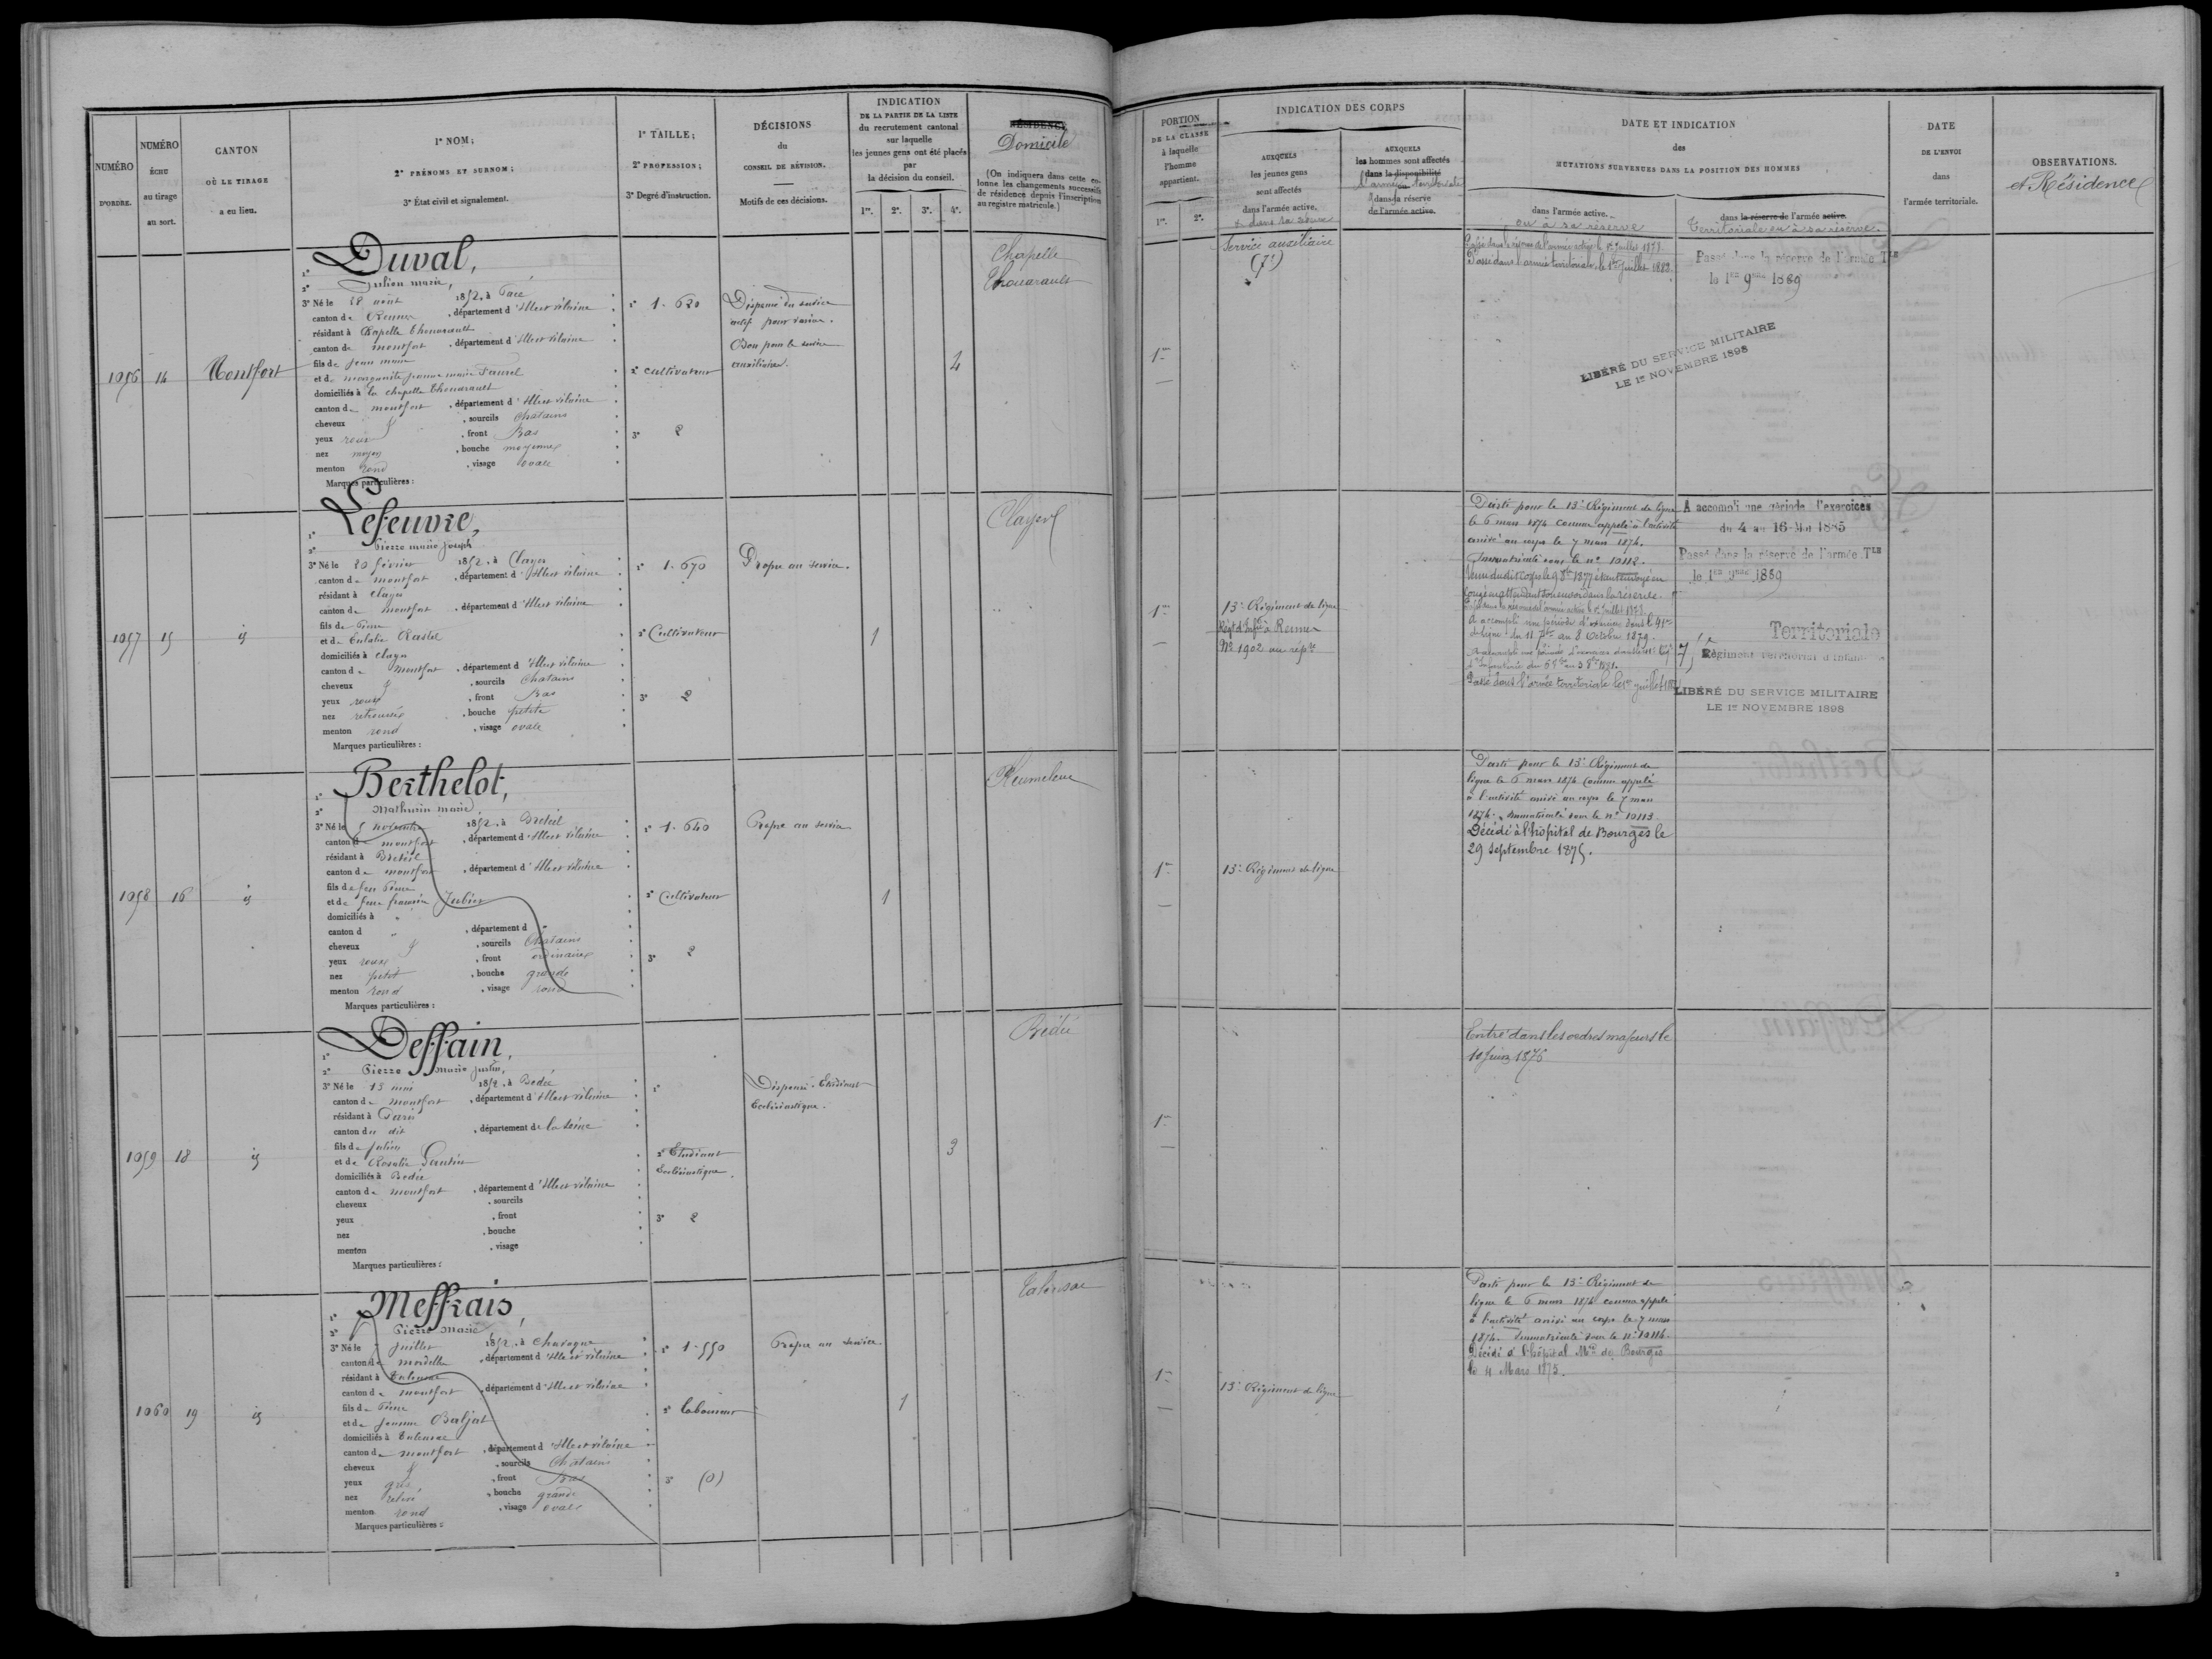 NUMÉRO
D'ORDRE.
NUMÉRO
ÉCHU
au tirage
au sort.
CANTON
OÙ LE TIRAGE
a eu lieu.
1° NOM;
2° PRÉNOMS ET SURNOM;
3° État civil et signalement.
1° TAILLE;
2° PROFESSION;
3° Degré d'instruction.
DÉCISIONS
du
CONSEIL DE RÉVISION.
Motifs de ces décisions.
INDICATION
DE LA PARTIE DE LA LISTE
du recrutement cantonal
sur laquelle
les jeunes gens ont été placés
par
la décision du conseil.
1re. 2e. 3e. 4e.
RÉSIDENCE
Domicile
(On indiquera dans cette co-
lonne les changements successifs
de résidence depuis l'inscription
au registre matricule.)
PORTION
DE LA CLASSE
à laquelle
l'homme
appartient.
1re. 2e.
INDICATION DES CORPS
AUXQUELS
les jeunes gens
sont affectés
dans l'armée active.
et dans sa réserve
AUXQUELS
les hommes sont affectés
dans la disponibilité
ou
l'armée territoriale
dans la réserve
de l'armée active.
DATE ET INDICATION
des
MUTATIONS SURVENUES DANS LA POSITION DES HOMMES
dans l'armée active.
ou à sa réserve
dans la réserve de l'armée active.
Territoriale ou à sa réserve.
DATE
DE L'ENVOI
dans
l'armée territoriale.
OBSERVATIONS.
et Résidence
1056 14 Montfort
1° Duval,
2° Julien marie,
3° Né le 28 août 1852, à Pacé
canton de Rennes, département d'Ille et vilaine
résidant à Chapelle Thouarault
canton de montfort, département d'Ille et vilaine
fils de Jean marie
et de marguerite jeanne marie
domiciliés à la chapelle Thouarault
canton de montfort, département d'Ille et vilaine
cheveux et, sourcils Chatains
yeux roux, front Bas
nez moyen, bouche moyenne
menton rond, visage ovale
Marques particulières :
1° 1.620
2° cultivateur
3° 2
Dispensé du service
actif pour
Bon pour le service
auxiliaire.
4
Chapelle
Thouarault
1re
Service auxiliaire
(7e)
Passé dans la réserve de l'armée active le 1er Juillet 1878.
Passé dans l'armée territoriale, le 1er Juillet 1883.
Passé dans la réserve de l'armée Tle
le 1er 9bre 1889
LIBÉRÉ DU SERVICE MILITAIRE
LE 1er NOVEMBRE 1898
1057 15 id
1° Lefeuvre,
2° Pierre marie Joseph
3° Né le 20 février 1852, à Clayes
canton de montfort, département d'Ille et vilaine
résidant à Clayes
canton de montfort, département d'Ille et vilaine
fils de Pierre
et de Eulalie
domiciliés à Clayes
canton de Montfort, département d'Ille et vilaine
cheveux et, sourcils Chatains
yeux roux, front Bas
nez retroussé, bouche petite
menton rond, visage ovale
Marques particulières :
1° 1.670
2° Cultivateur
3° 2
Propre au service.
1
Clayes
1re
13e Régiment de ligne
Régt d'Infie à Rennes
No 1902 au répre
Parti pour le 13e Régiment de ligne
le 6 mars 1874 comme appelé à l'activité
arrivé au corps le 7 mars 1874.
Immatriculé sous le n° 10112.
Venu dudit Corps le 9 8bre 1877 étant envoyé en
congé en attendant son envoi dans la réserve.
Passé dans la réserve de l'armée active le 1er Juillet 1878.
A accompli une période d'exercices dans le 41e
de ligne du 11 7bre au 8 Octobre 1879.
Passé dans l'armée territoriale le 1er juillet 1883
A accompli une période d'exercices
du 4 au 16 Mai 1885
Passé dans la réserve de l'armée Tle
le 1er 9bre 1889
Territoriale
Régiment territorial d'Infanterie
LIBÉRÉ DU SERVICE MILITAIRE
LE 1er NOVEMBRE 1898
1058 16 id
1° Berthelot,
2° Mathurin marie
3° Né le 5 novembre 1852, à Bréteil
canton de montfort, département d'Ille et vilaine
résidant à Bréteil
canton de montfort, département d'Ille et vilaine
fils de feu Pierre
et de feue françoise Jubier
domiciliés à "
canton d ", département d "
cheveux et, sourcils Chatains
yeux roux, front ordinaire
nez petit, bouche grande
menton rond, visage rond
Marques particulières :
1° 1.640
2° Cultivateur
3° 2
Propre au service
1
Pleumeleuc
1re
13e Régiment de ligne
Parti pour le 13e Régiment de
ligne le 6 mars 1874 comme appelé
à l'activité arrivé au corps le 7 mars
1874. Immatriculé sous le n° 10113.
Décédé à l'hôpital de Bourges le
29 septembre 1875.
1059 18 id
1° Deffain,
2° Pierre Marie Justin,
3° Né le 13 mai 1852, à Bédée
canton de montfort, département d'Ille et vilaine
résidant à Paris
canton du dit, département de la Seine
fils de Julien
et de Rosalie
domiciliés à Bédée
canton de montfort, département d'Ille et vilaine
cheveux, sourcils
yeux, front
nez, bouche
menton, visage
Marques particulières :
1°
2° Etudiant
Ecclésiastique.
3° 2
Dispensé. Etudiant
Ecclésiastique.
3
Bédée
1re
Entré dans les ordres majeurs le
10 Juin 1876
1060 19 id
1° Meffrais,
2° Pierre Marie
3° Né le juillet 1852, à Chavagne
canton de mordelles, département d'Ille et vilaine
résidant à Talensac
canton de montfort, département d'Ille et vilaine
fils de Pierre
et de Jeanne
domiciliés à Talensac
canton de montfort, département d'Ille et vilaine
cheveux et, sourcils Chatains
yeux gris, front Bas
nez relevé, bouche grande
menton rond, visage ovale
Marques particulières :
1° 1.550
2° laboureur
3° (0)
Propre au service.
1
Talensac
1re
13e Régiment de ligne
Parti pour le 13e Régiment de
ligne le 6 mars 1874 comme appelé
à l'activité arrivé au corps le 7 mars
1874. Immatriculé sous le n° 10114.
Décédé à l'hôpital Mre de Bourges
le 4 Mars 1875.